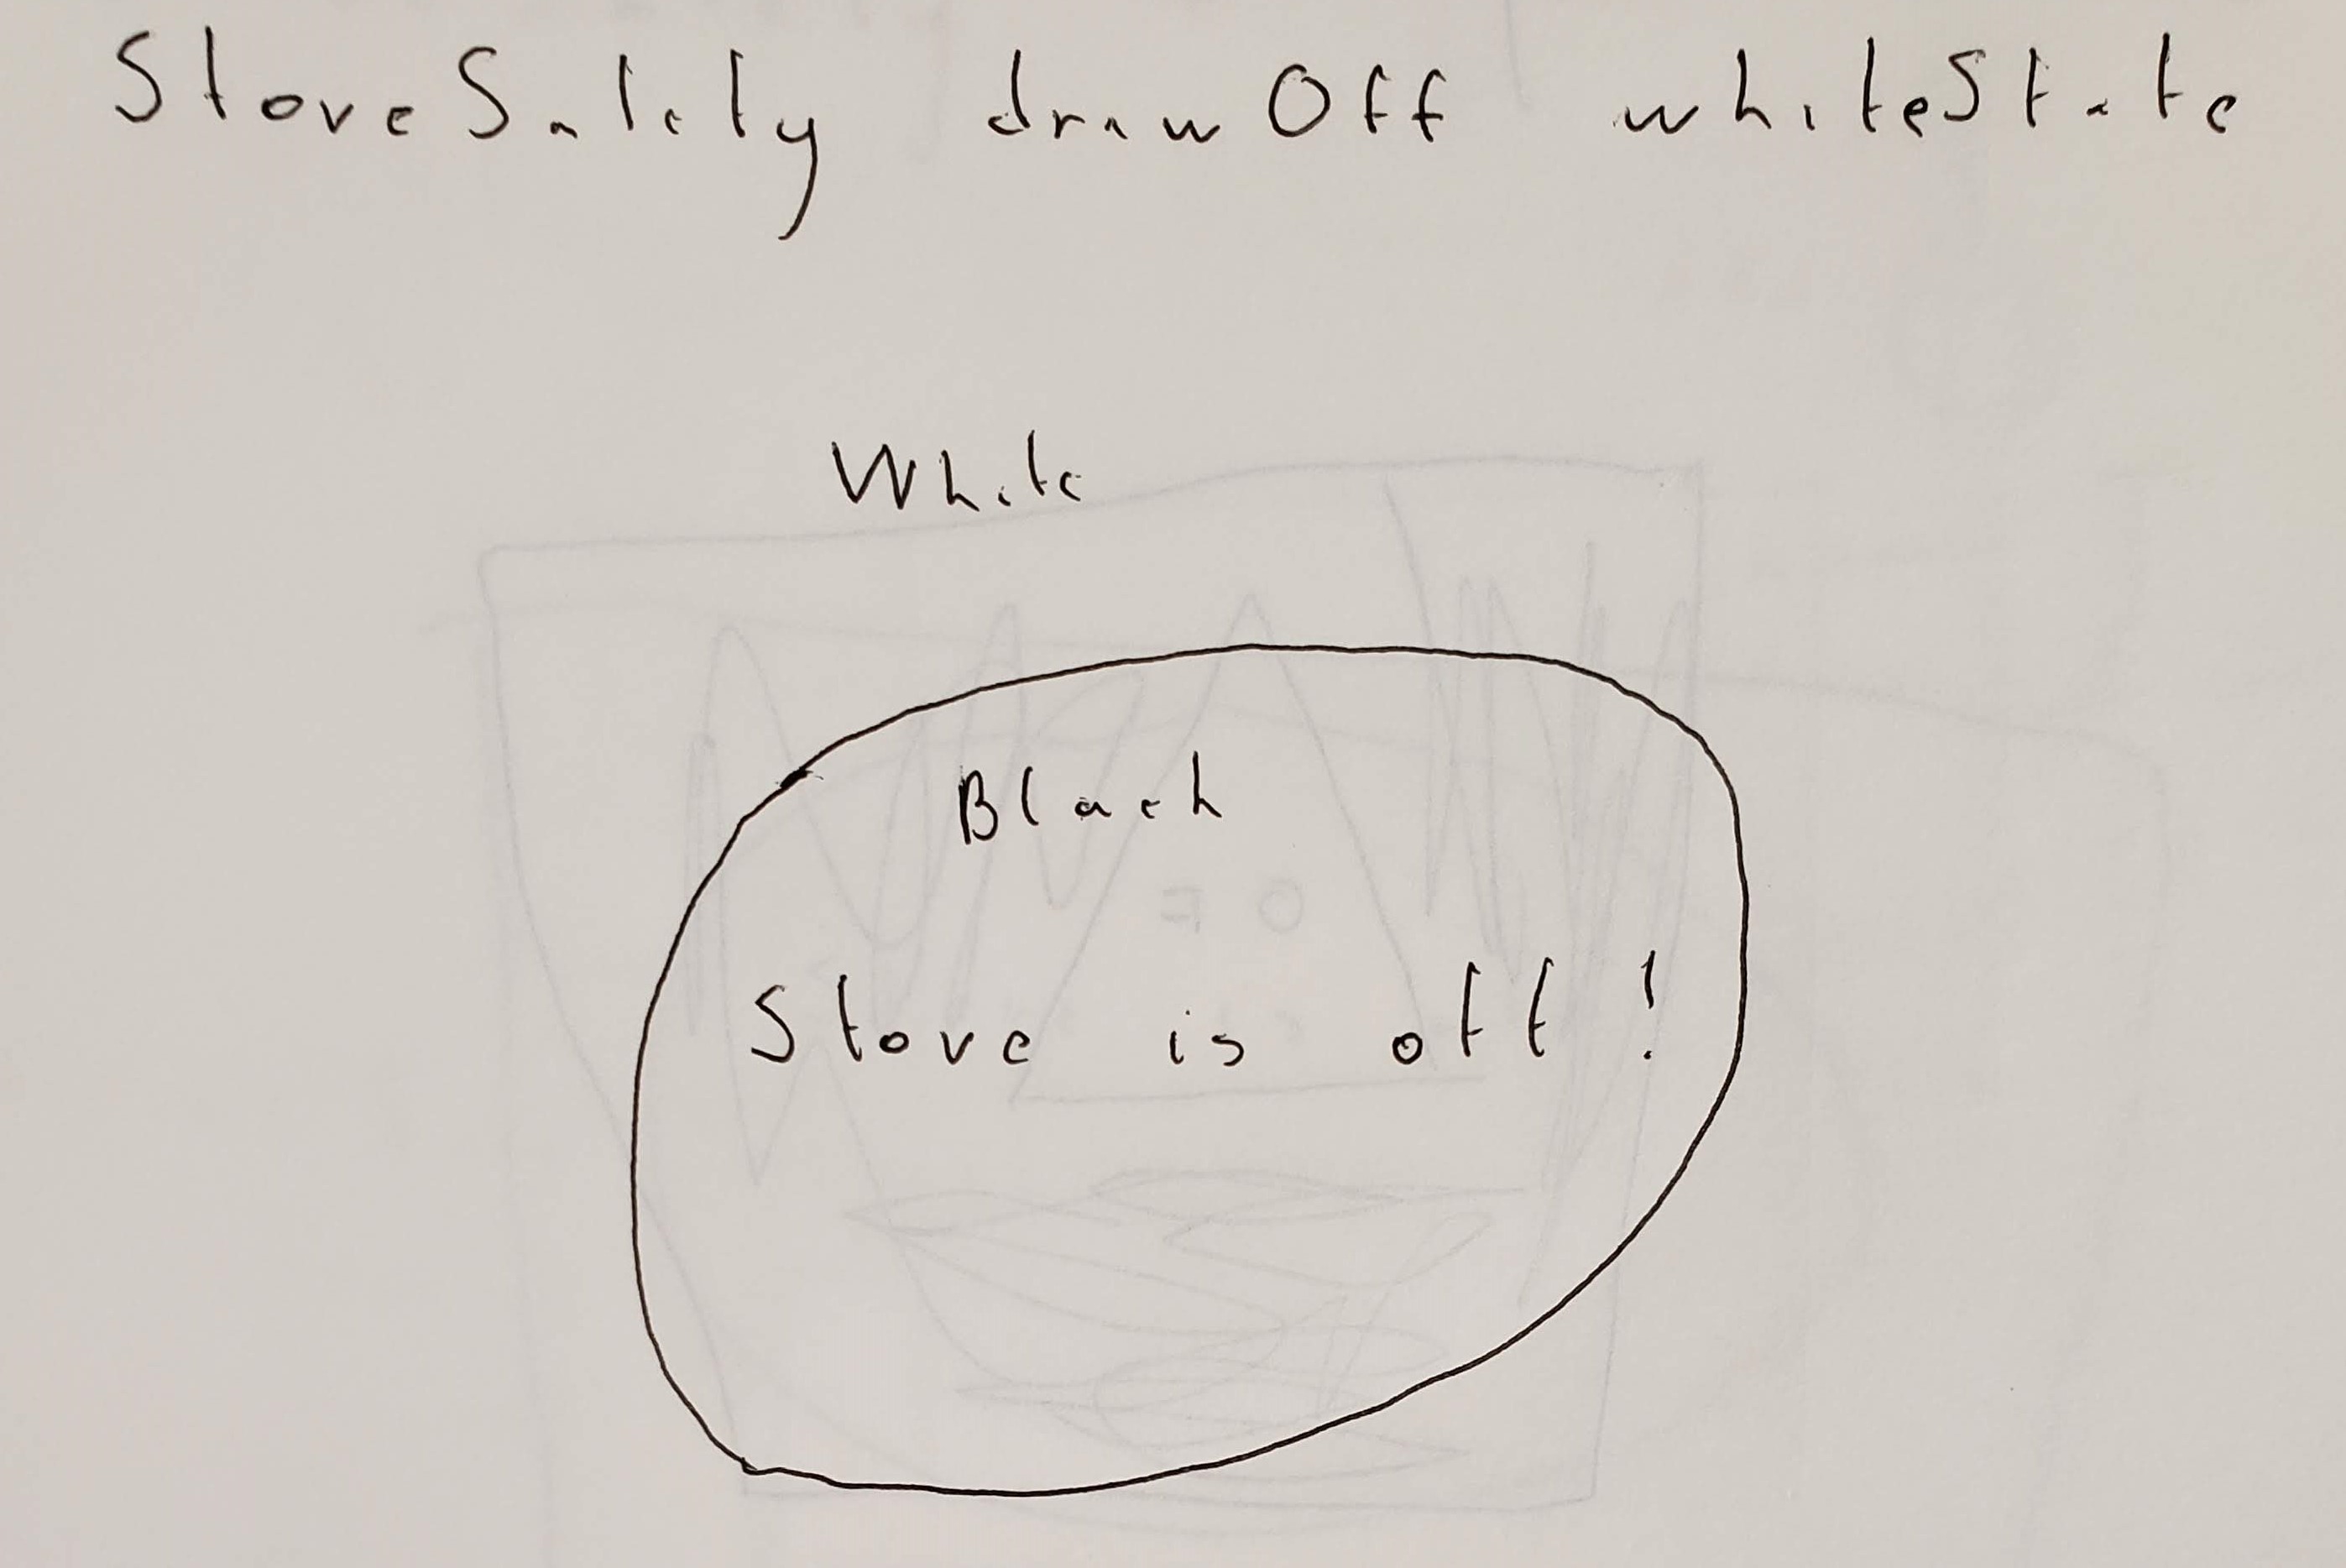 StoveSafety drawOff whiteState
White
Black
Stove is off!